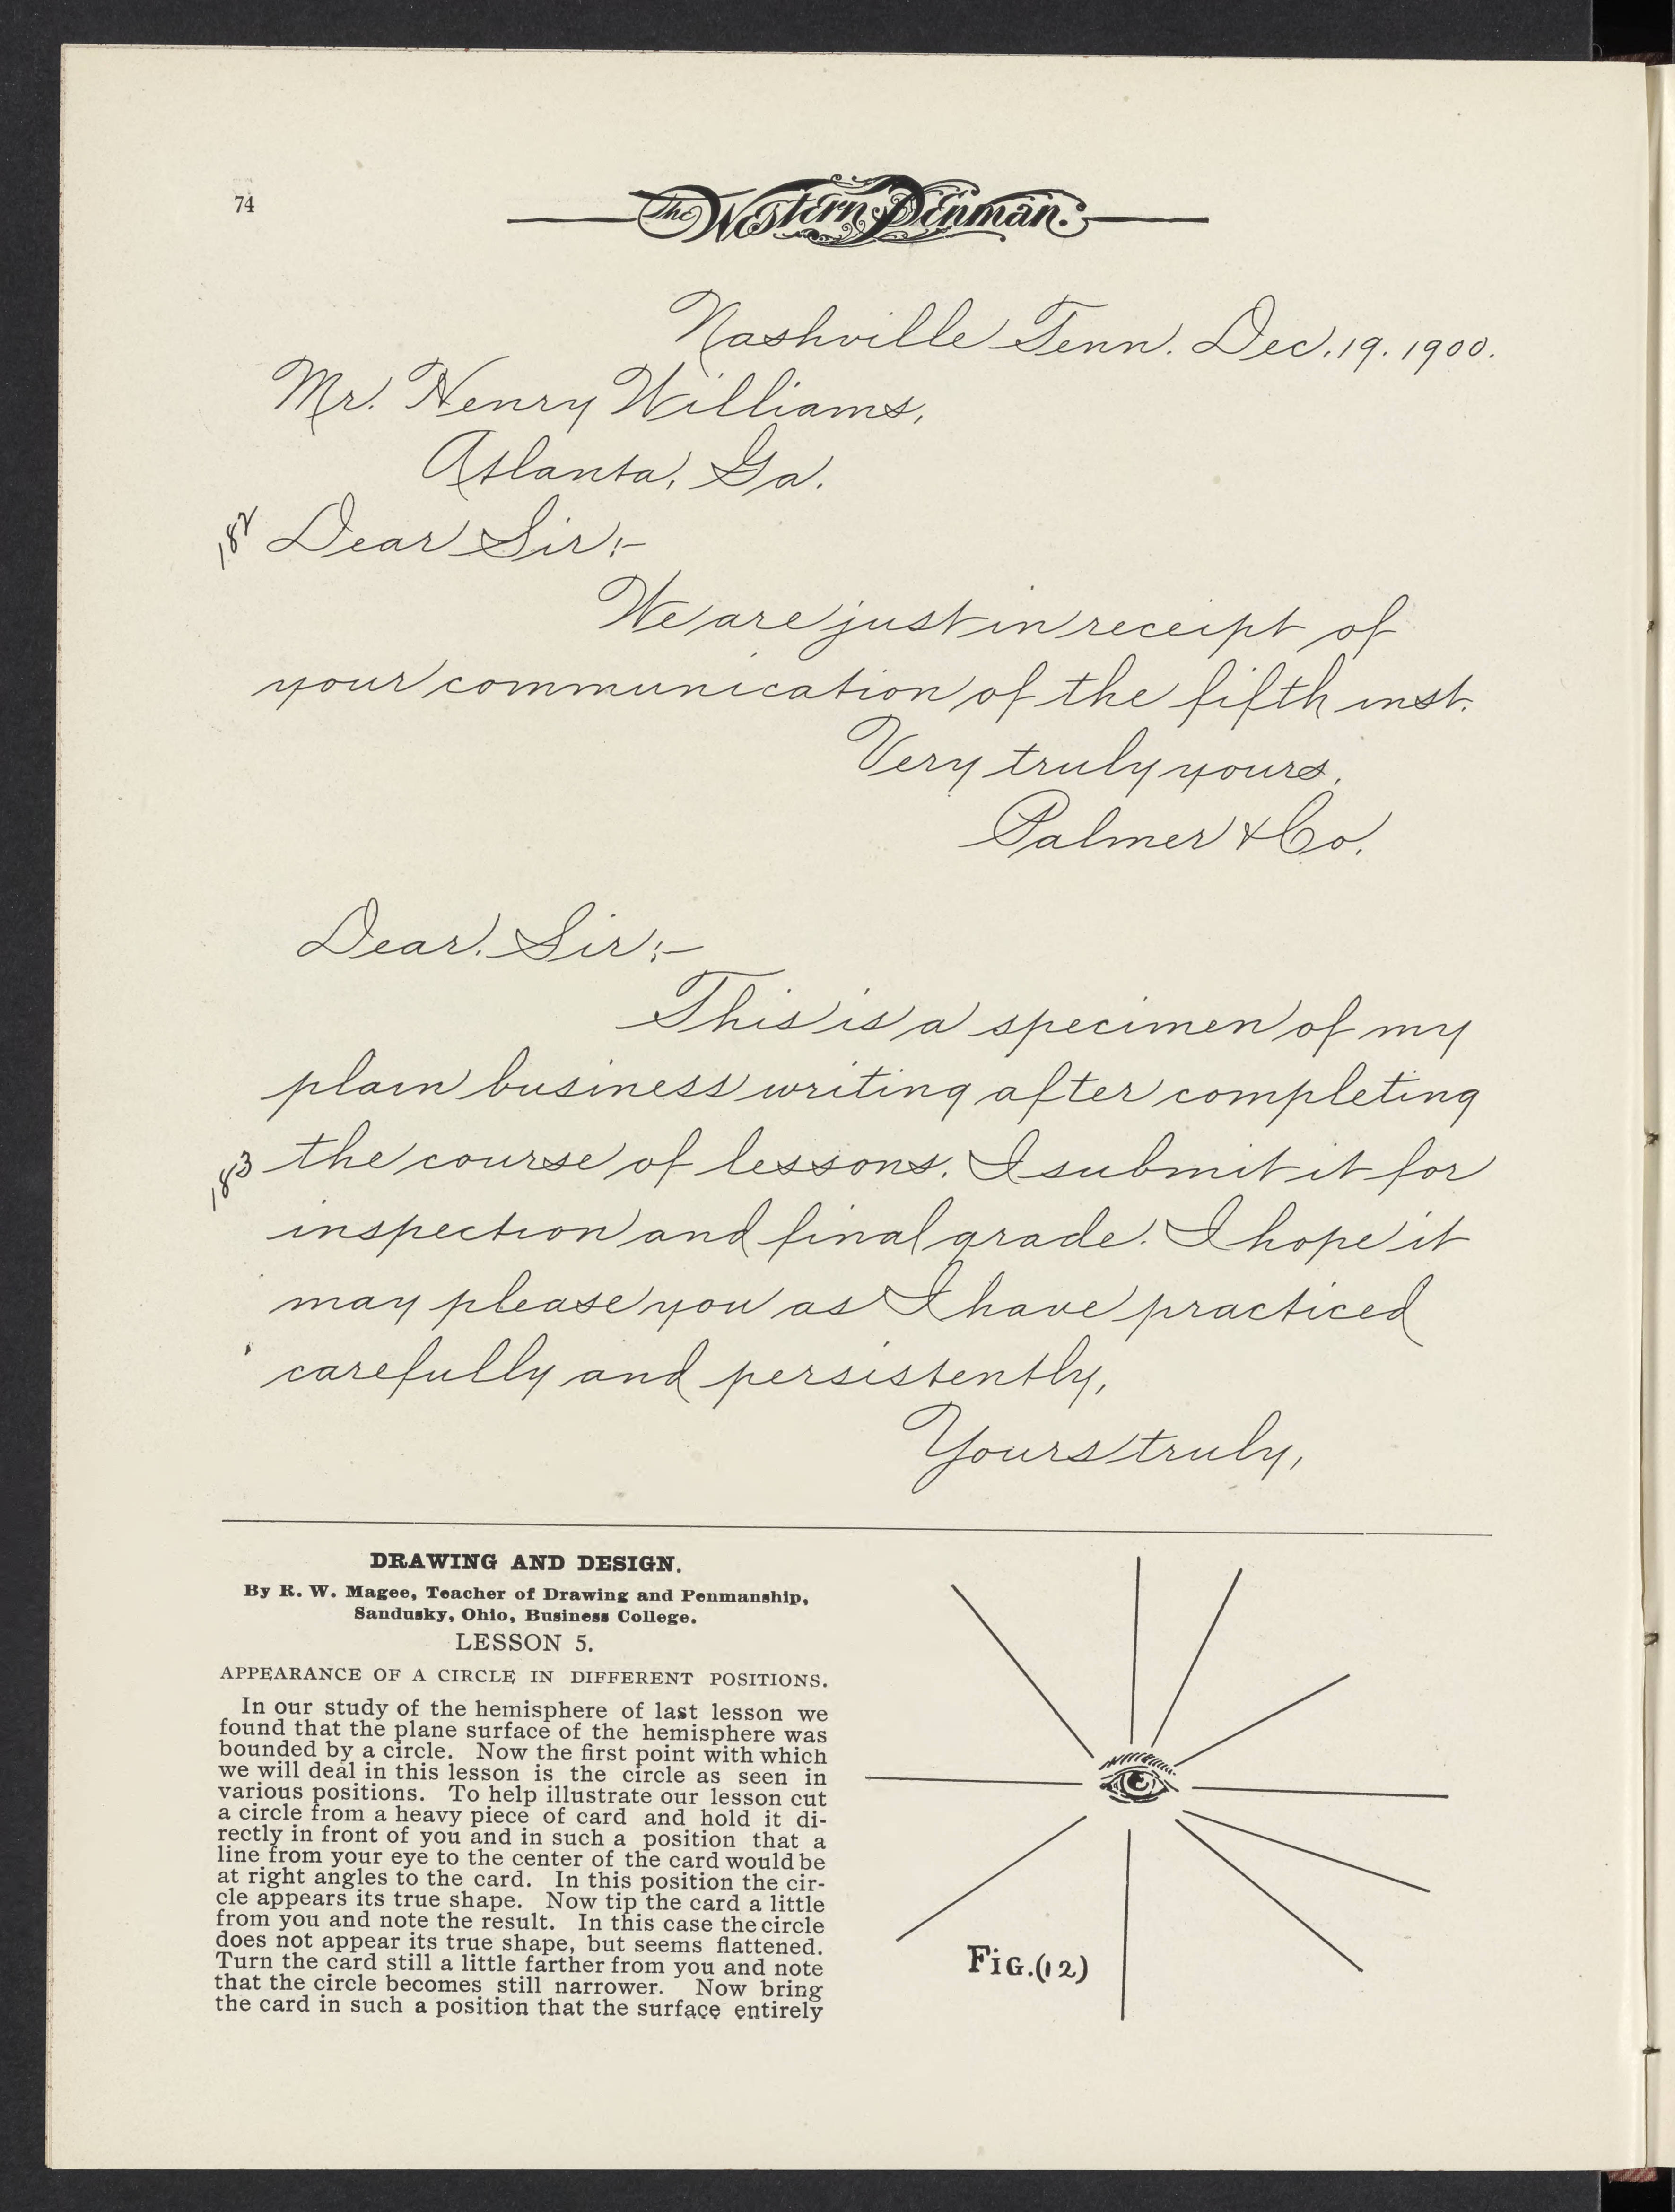 74
The Western Penman.
Nashville Tenn. Dec. 19. 1900.
Mr. Henry Williams,
Atlanta, Ga.
182
Dear Sir:-
We are just in receipt of
your communication of the fifth inst.
Very truly yours,
Palmer & Co.
Dear. Sir:-
This is a specimen of my
plain business writing after completing
183
the course of lessons. I submit it for
inspection and final grade. I hope it
may please you as I have practiced
carefully and persistently,
Yours truly,
DRAWING AND DESIGN.
By R. W. Magee, Teacher of Drawing and Penmanship,
Sandusky, Ohio, Business College.
LESSON 5.
APPEARANCE OF A CIRCLE IN DIFFERENT POSITIONS.
In our study of the hemisphere of last lesson we
found that the plane surface of the hemisphere was
bounded by a circle. Now the first point with which
we will deal in this lesson is the circle as seen in
various positions. To help illustrate our lesson cut
a circle from a heavy piece of card and hold it di-
rectly in front of you and in such a position that a
line from your eye to the center of the card would be
at right angles to the card. In this position the cir-
cle appears its true shape. Now tip the card a little
from you and note the result. In this case the circle
does not appear its true shape, but seems flattened.
Turn the card still a little farther from you and note
that the circle becomes still narrower. Now bring
the card in such a position that the surface entirely
FIG.(12)